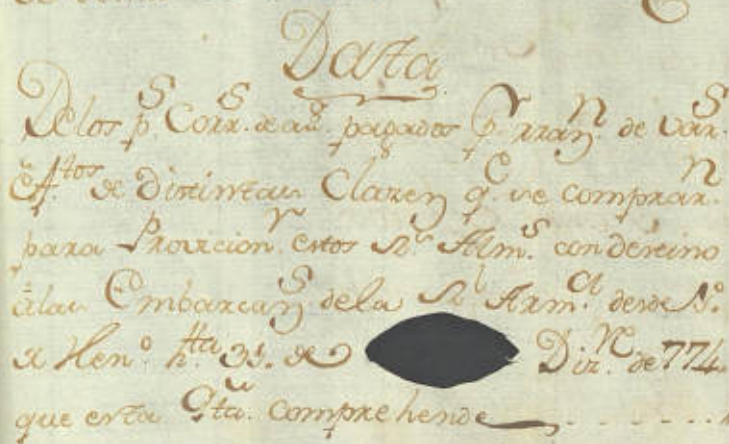 Data
De los p.s Corr.s de a.
pagados p.r rraz.n de var.s
Ef.tos de distintas Clases q.e se comprar.n
para Provicion estos R.s Alm.s con destino
á las Embarcaz.s de la R.l Arm.da desde 1.º
de Hen.º h.ta 31. de Diz.re de 774.
que esta Q.ta comprehende